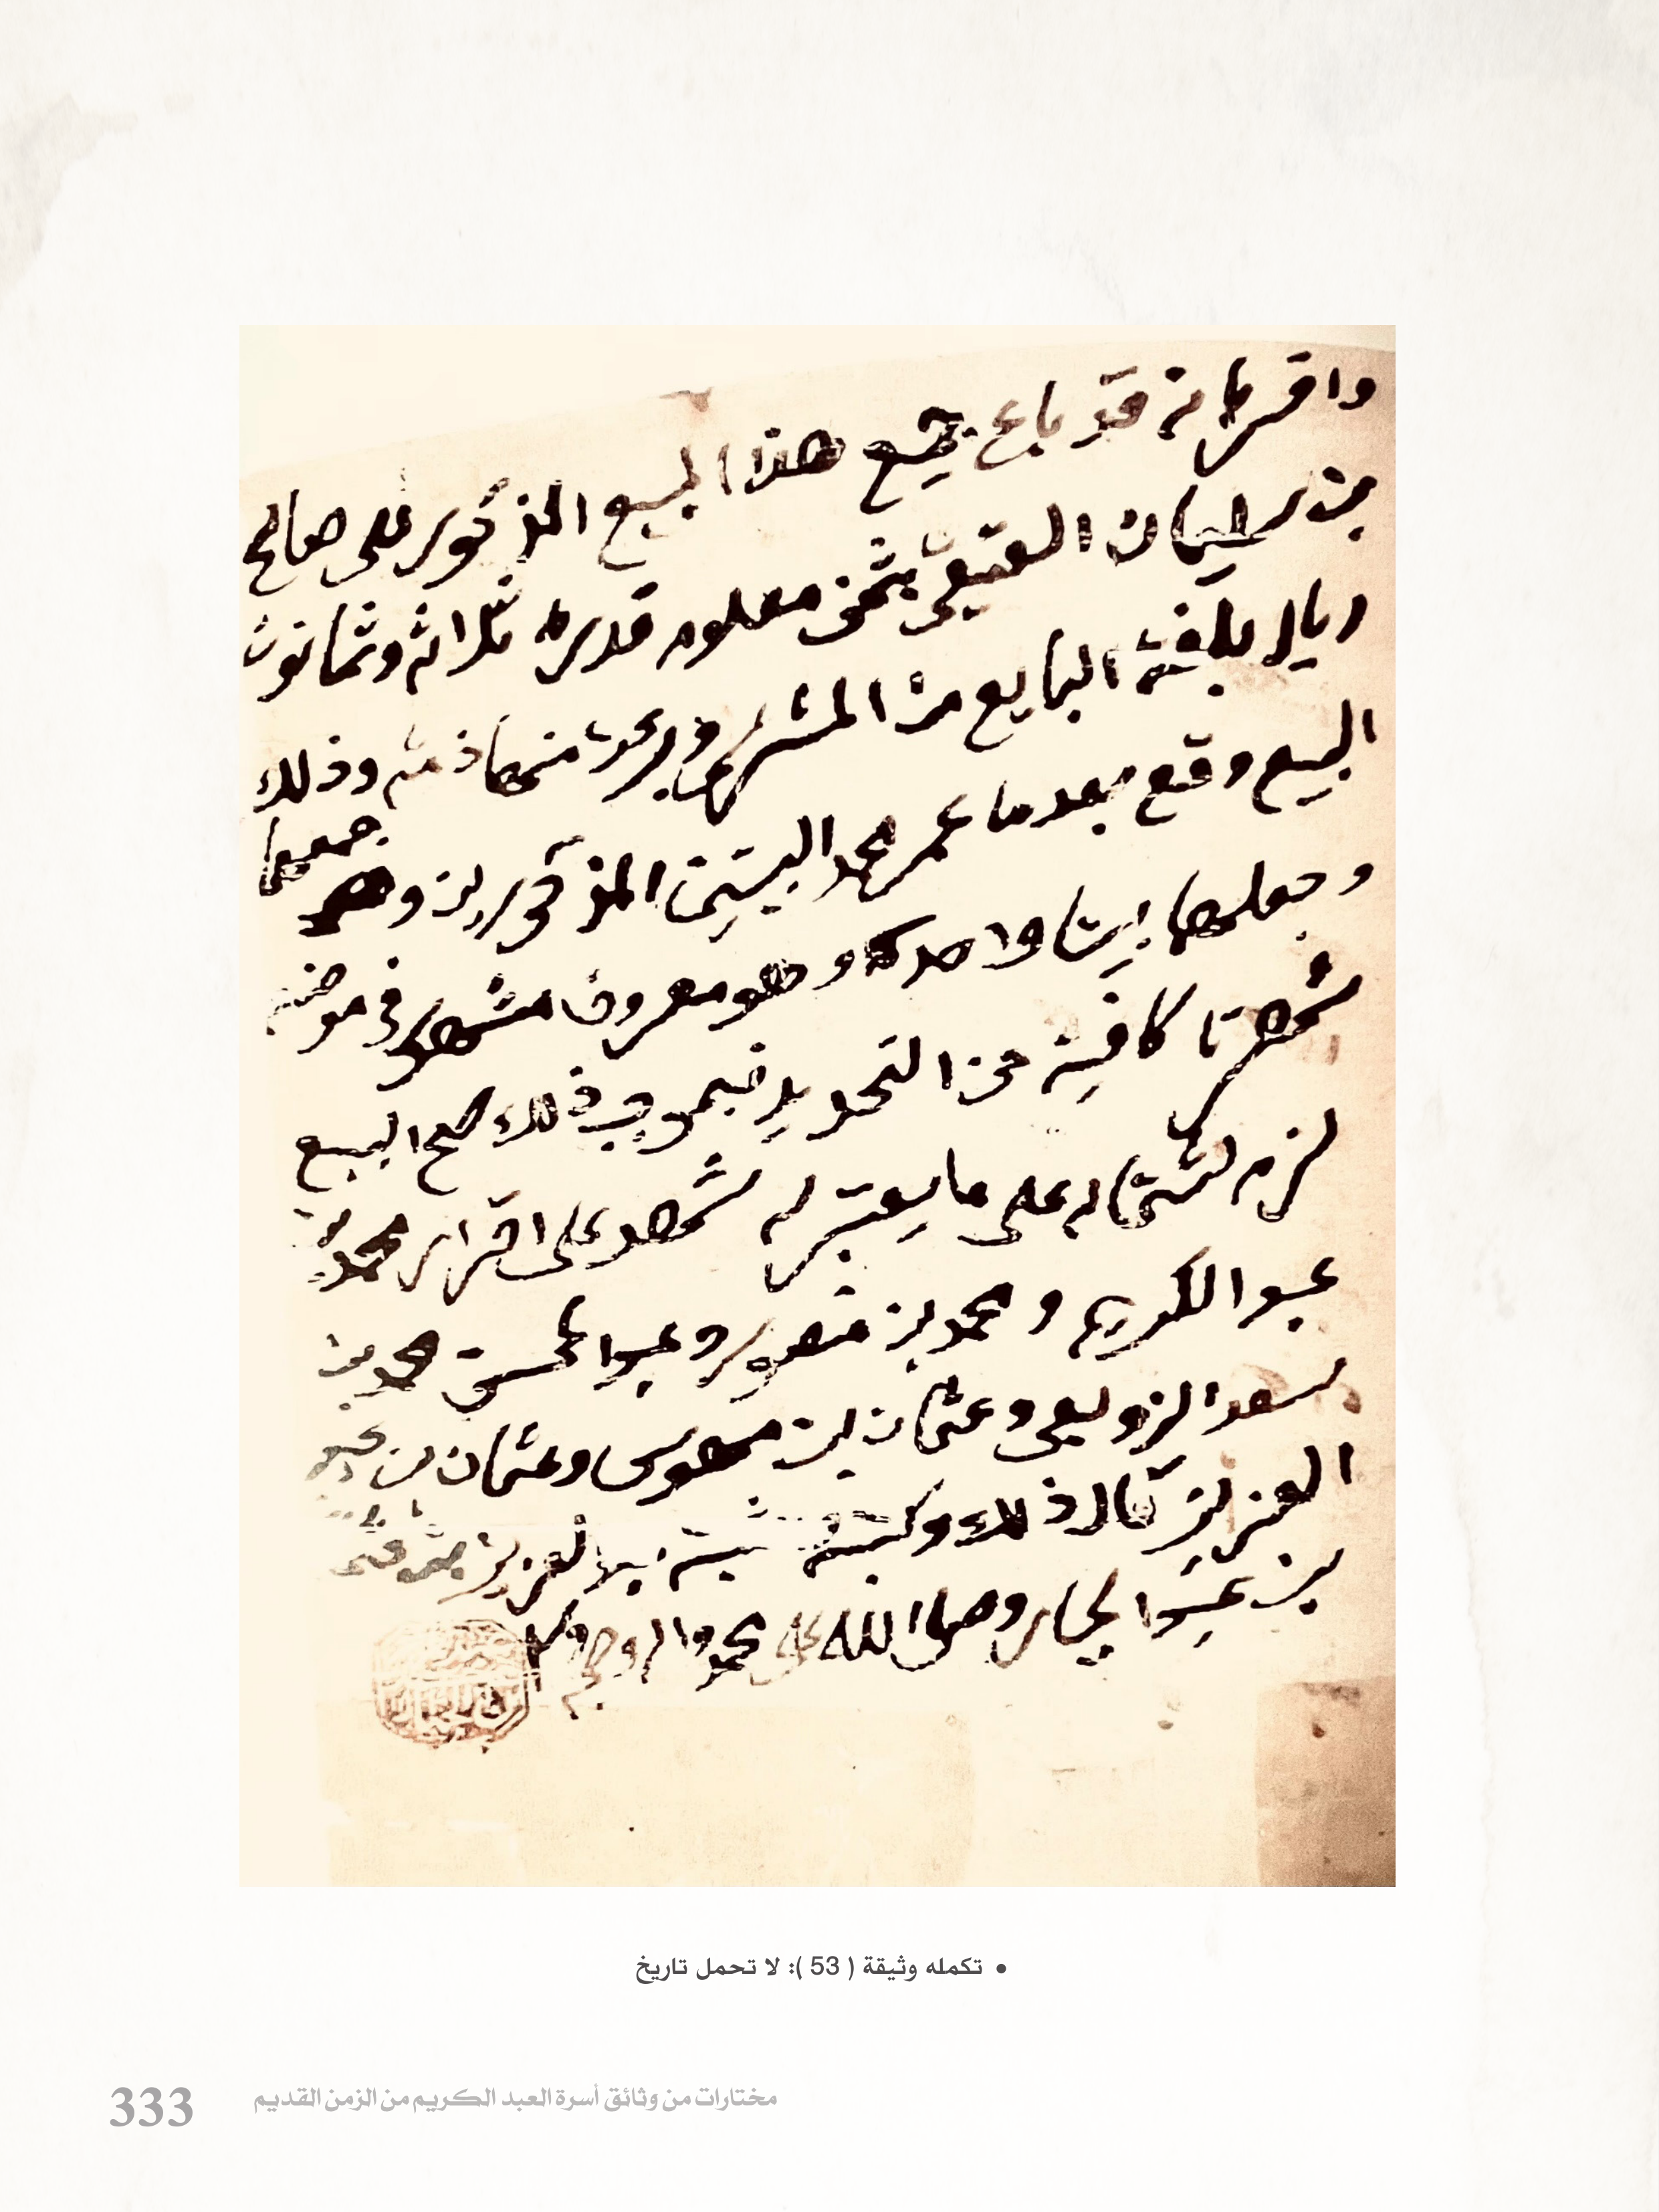 واقر بانه قد باع جميع هذا المبيع المذكور على صالح
بن سليمان العتيقي بثمن معلوم قدره ثلاثة وثمانون
ريال بلغة البايع من المشتري وبرئت منها ذمته وذلك
البيع وقع بعد ما عمر محمد البيتين المذكورين و جمعها
وجعلها بيتا واحد و هو معروف مشهور في موضعه
شهرتا كافية عن التحديد فبموجب ذلك صح البيع
لزم لشتماله على ما يعتبر له شهد على اقرار محمد بن
عبد الكريم و محمد بن منصور و عبد المحسن محمد بن
سعد الزويعي وعثمان بن وعثمان بن عبد
العزيز قال ذلك وكتبه عبد العزيز
بن عبد الجبار وصلى الله على محمد واله وصحبه وسلم
• تكمله وثيقة ( 53 ): لا تحمل تاريخ
مختارات من وثائق أسرة العبد الكريم من الزمن القديم
333